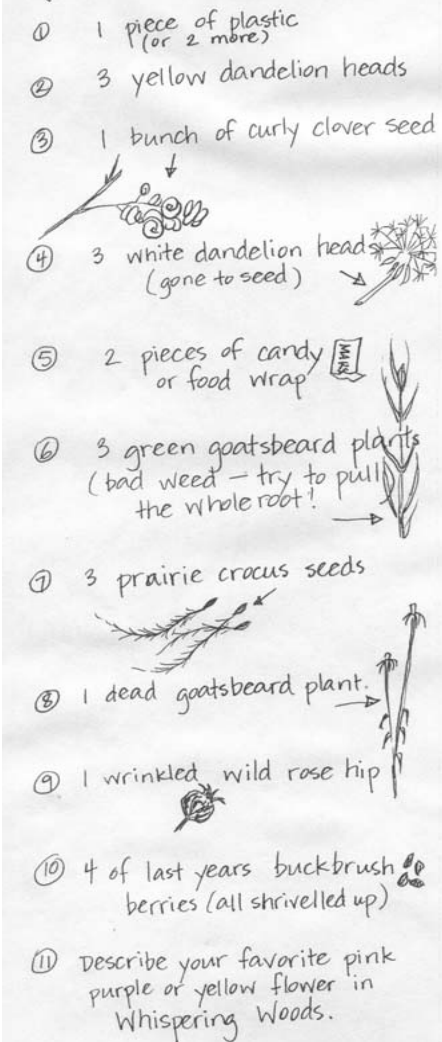 ① 1 piece of plastic
(or 2 more)
② 3 yellow dandelion heads
③ 1 bunch of curly clover seed
④ 3 white dandelion heads
(gone to seed)
⑤ 2 pieces of candy
or food wrap
MARS
⑥ 3 green goatsbeard plants
(bad weed - try to pull
the whole root!
⑦ 3 prairie crocus seeds
⑧ 1 dead goatsbeard plant.
⑨ 1 wrinkled wild rose hip
⑩ 4 of last years buckbrush
berries (all shrivelled up)
⑪ Describe your favorite pink
purple or yellow flower in
Whispering Woods.